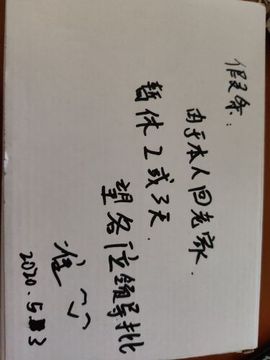 假条:
由于本人回老家.
暂休2或3天.
望各位领导批
准
2020.5.3